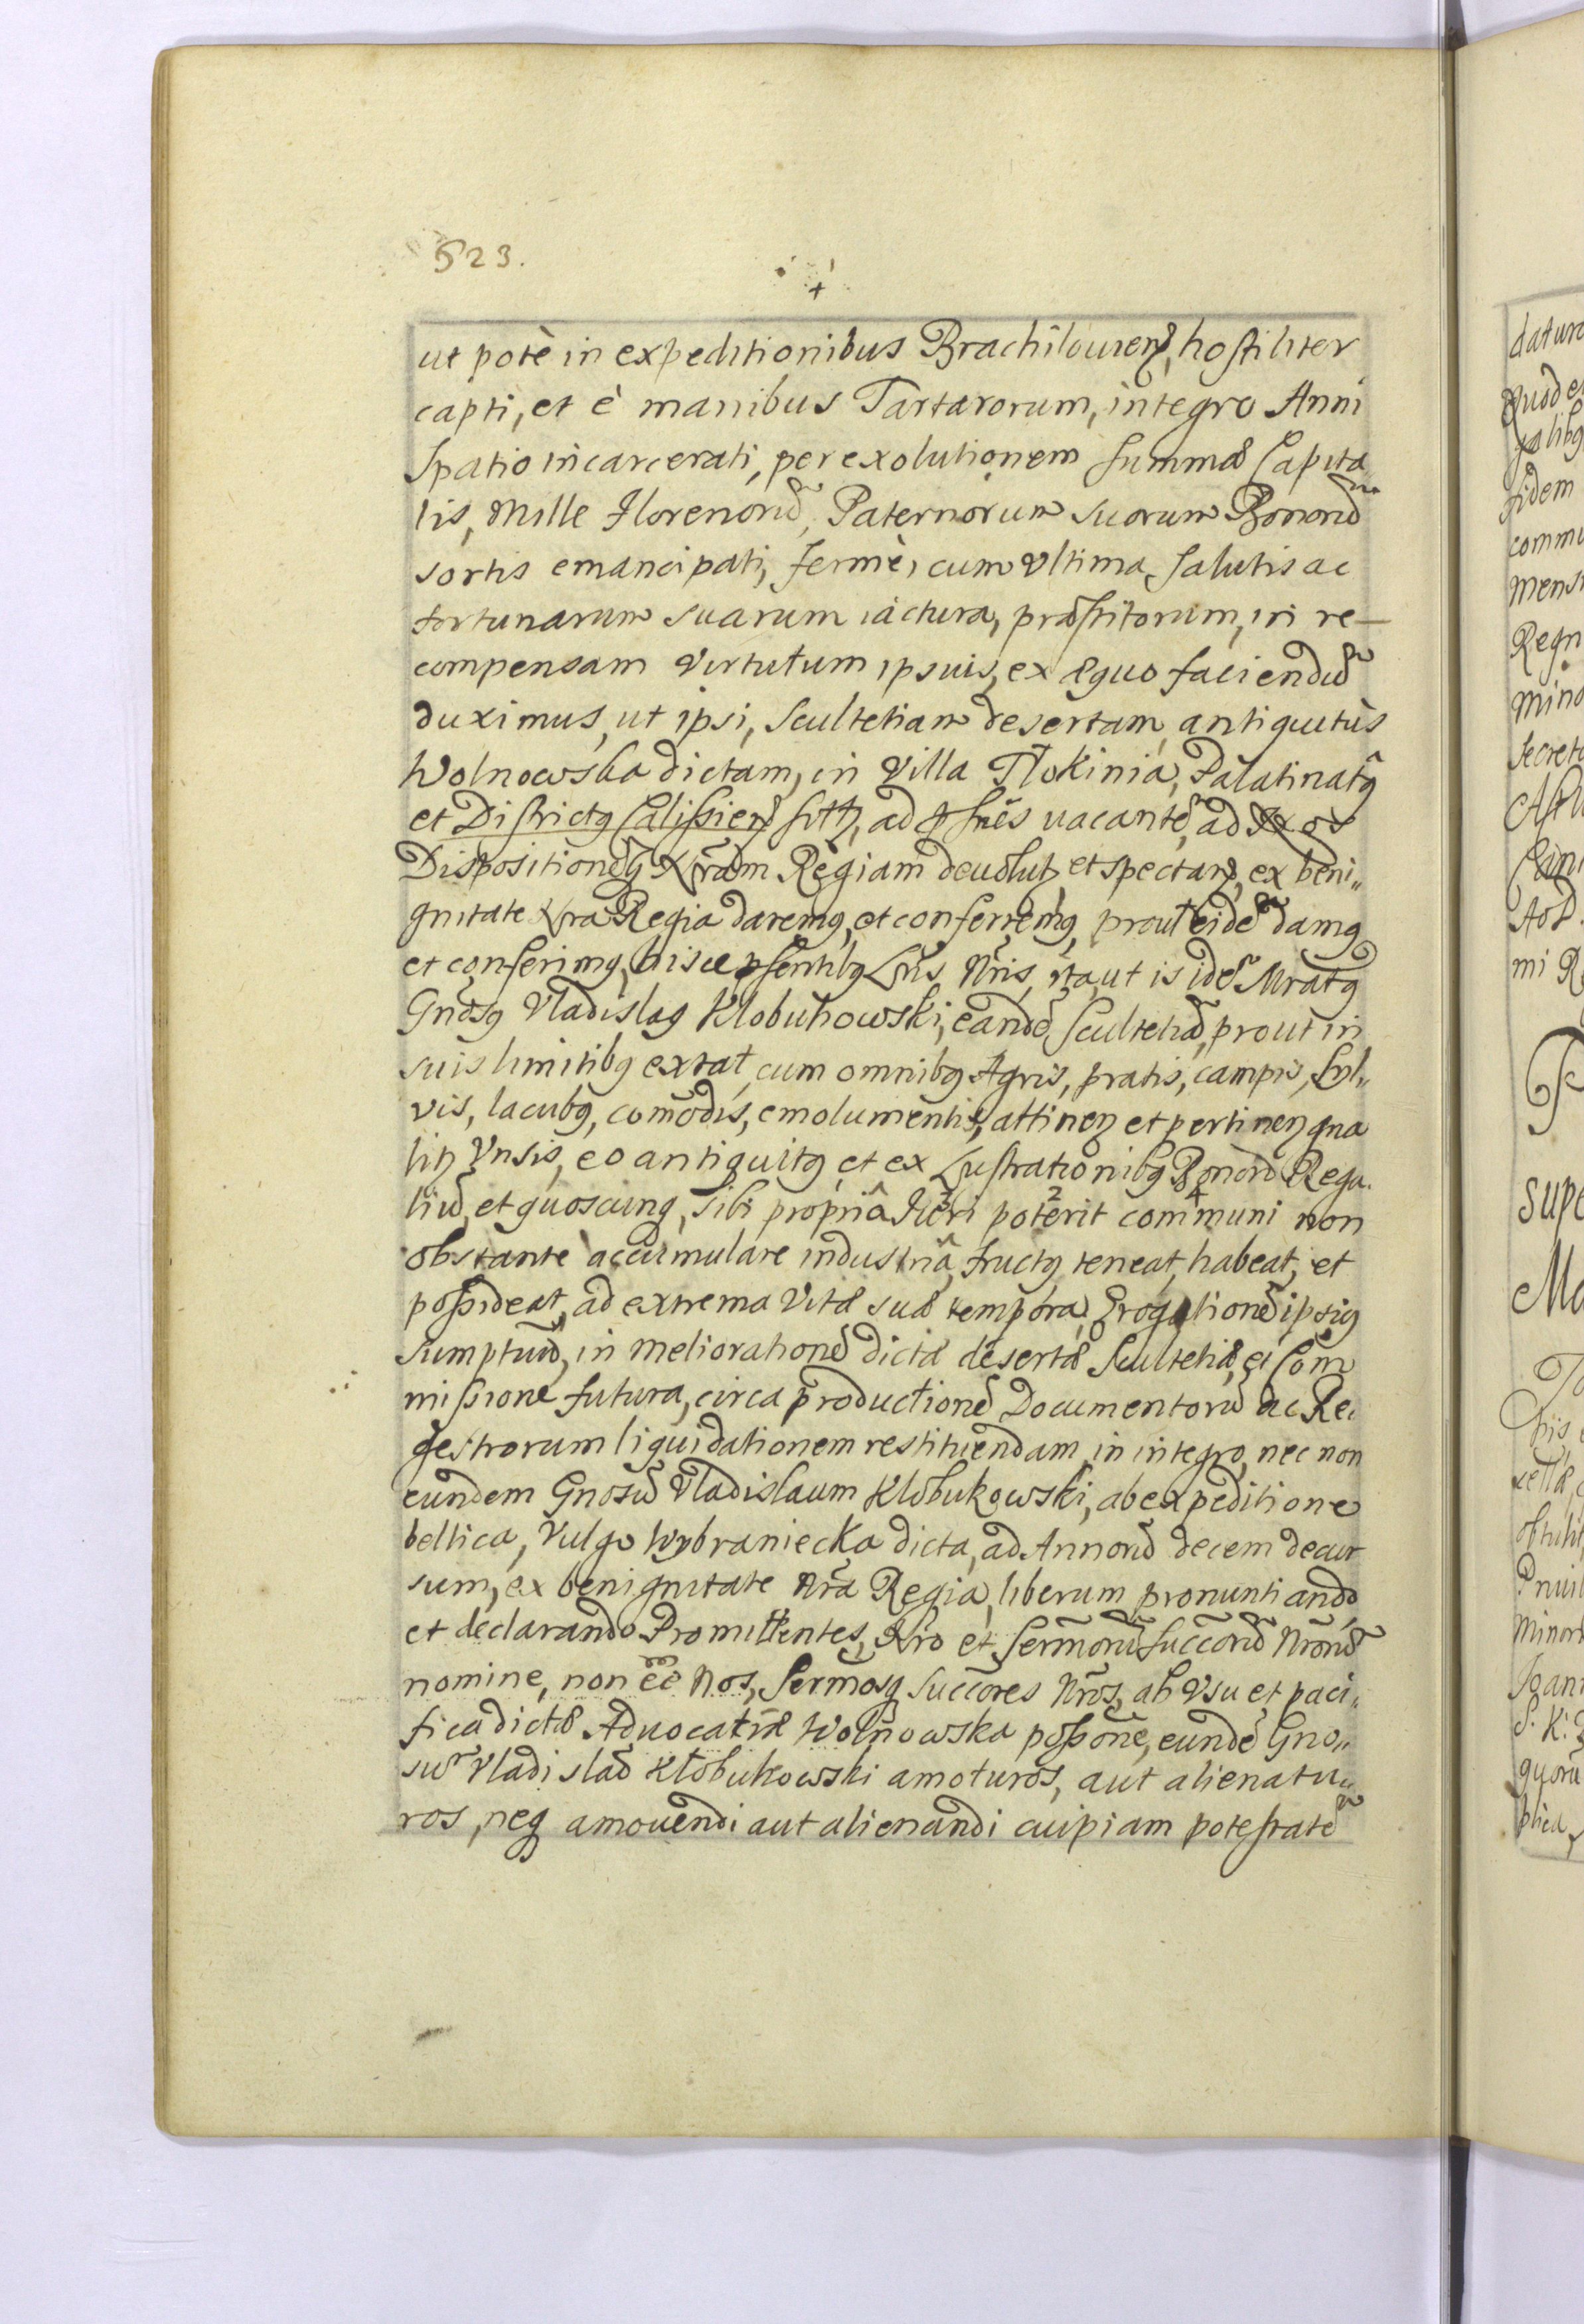 523.
ut potè in expeditionibus Brachilouien, hostiliter
capti, et è manibus Tartarorum, integro Anni
Spatio incarcerati, per exolutionem summæ Capita
lis, Mille Florenorũ, Paternorum suorum Bonorũ
sortis emancipati, fermè, cum Vltima, salutis ac
fortunarum suarum iactura, præstitorum, in re—
compensam Virtutum ipsius, ex æquo faciendũ
duximus, ut ipsi, Scultetiam desertam antiquitùs
Wolnowska dictam, in Villa Tłokinia, Palatinatq
et Districtq Calissien sitt, ad pñs uacantẽ, ad Nos
Dispositionẽq Nrãm Regiam deuolut, et spectan, ex beni„
gnitate Nrã Regia daremq, et conferremq, prout eidẽ damq
et conferimq hisce pñsentibq Lrĩs Nrĩs, ita, ut is idẽ Mratq
Gnõsq Vladislaq Klobukowski, eandẽ Scultetiã, prout in
suis limitibq extat, cum omnibq Agris, pratis, campis, Syl„
vis, lacubq, com̃odis, emolumentis, attinen et pertinen qua
lit Vnsis, eo antiquitq et ex Lustrationibq Bonorũ Rega.
liũ, et quoscunq, sibi propriâ fieri poterit communi non
obstante accumulare industriâ, fructq teneat, habeat, et
possideat, ad extrema Vitæ suæ tempora, Erogationẽ ipsiq
sumptuũ, in meliorationẽ dictæ desertæ Scultetiæ, ex Com̃
missione futura, circa productionẽ Documentorũ ac Re„
gestrorum liquidationem restituendam in integro, nec non
eundem Gnõsũ Vladislaum Klobukowski, ab expeditione
bellica, Vulgo Wybraniecka dicta, ad Annorũ decem decur
sum, ex benignitate Nrã Regia, liberum pronuntiando
et declarando Promittentes, Nrõ et Serm̃orũ Succorũ Nrõrũ
nomine, non ẽẽ Nos, Serm̃osq Succores Nrõs, ab Vsu et paci„
fica dictæ Aduocatiæ Wolnowska possonẽ, eundẽ Gno„
sũ Vladislaũ Kłobukowski amoturos, aut alienatu„
ros, neq amouendi aut alienandi cuipiam potestatẽ